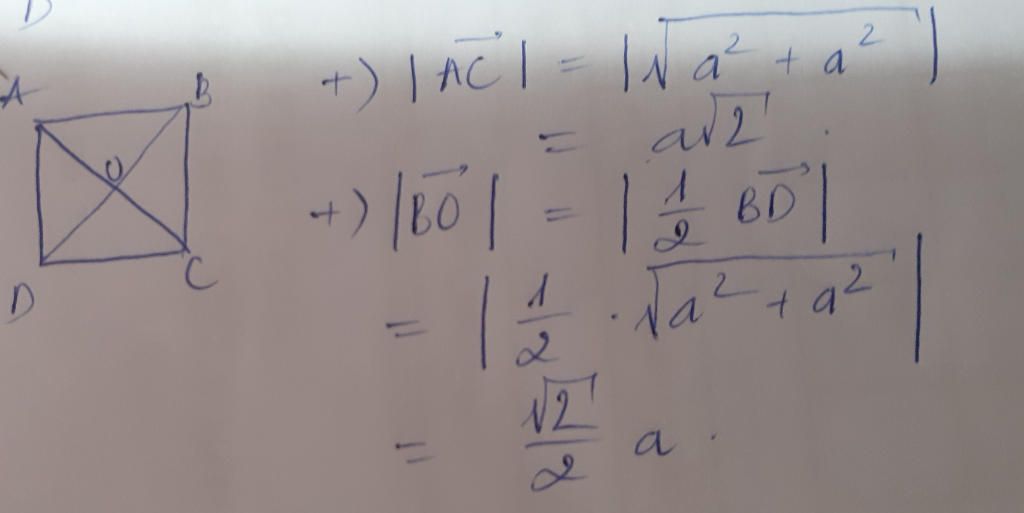 D
A
B
O
D
C
+) |\overrightarrow{AC}| = |√(a² + a²)|
= a√2 .
+) |\overrightarrow{BO}| = |\frac{1}{2} \overrightarrow{BD}|
= |\frac{1}{2} . √(a² + a²)|
= \frac{√2}{2} a .